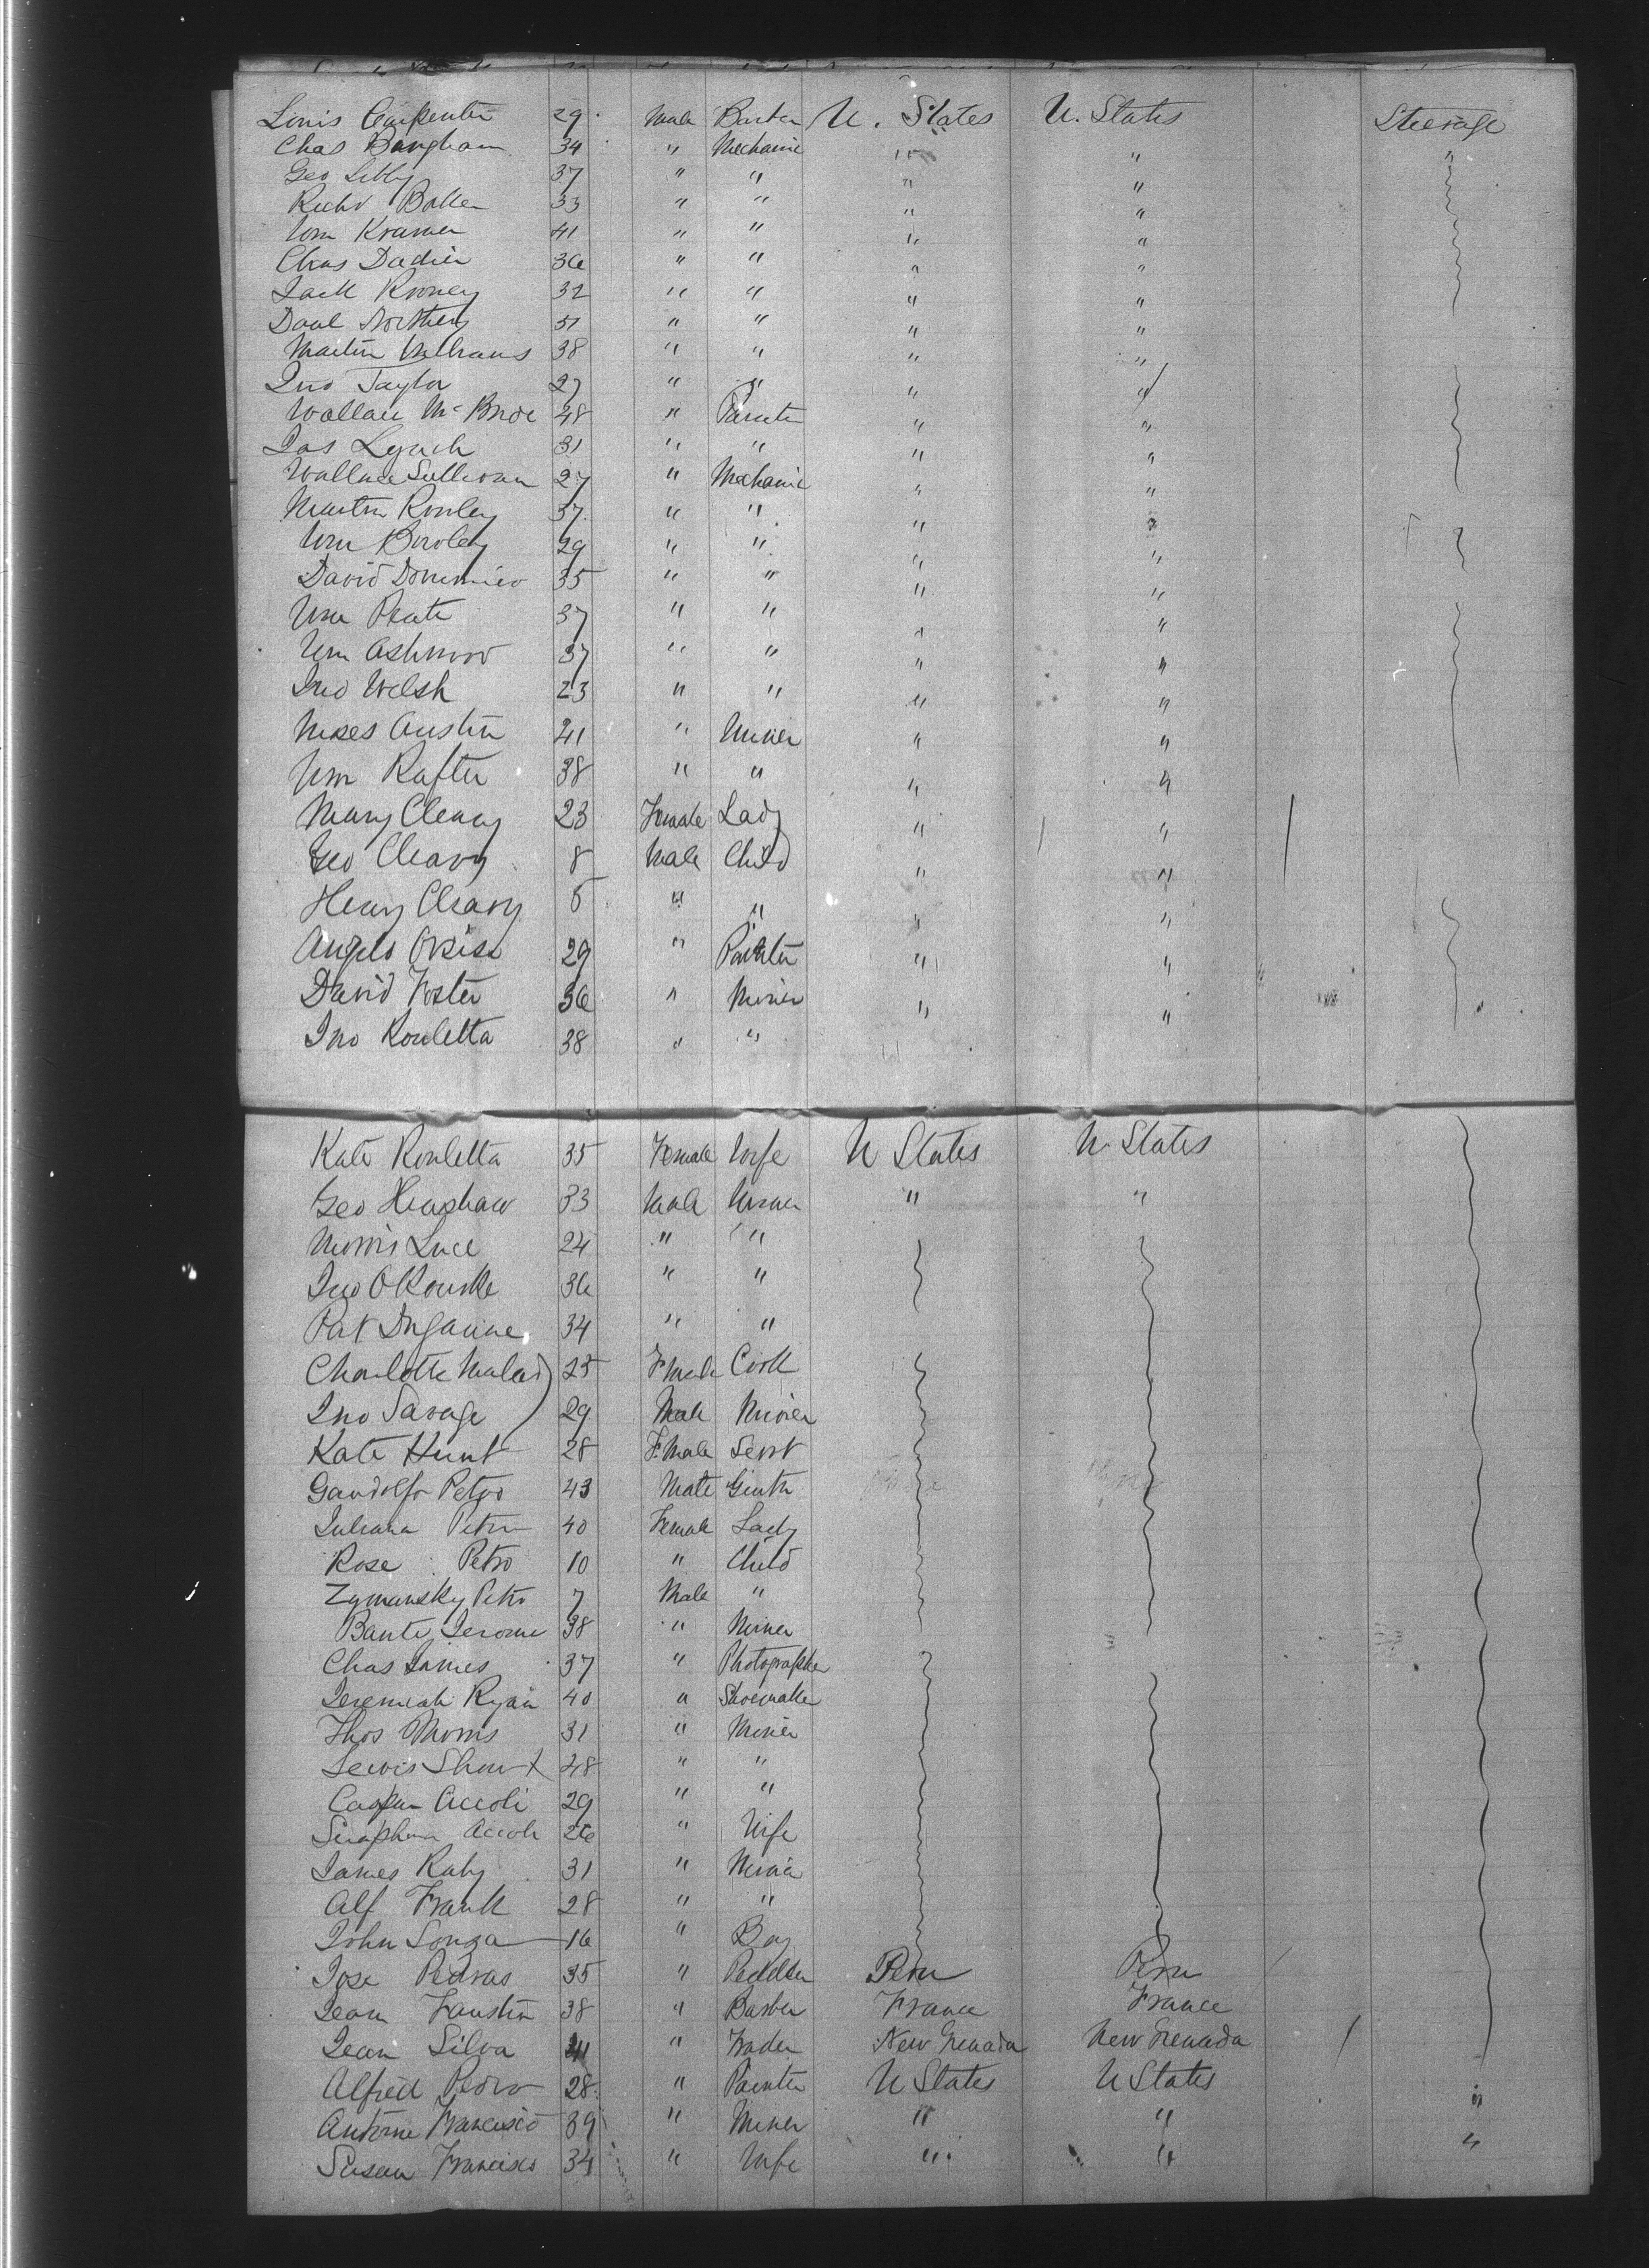 Louis Carpenter 29 Male Barber U. States U. States Steerage
Chas Bangham 34 " Mechanic " " "
Geo Libby 37 " " " "
Richd Baller 33 " " " "
Wm Kramer 41 " " " "
Chas Dadier 36 " " " "
Jack Rooney 32 " " " "
Danl 51 " " " "
Martin Williams 38 " " " "
Jno Taylor 27 " " " "
Wallace McBride 48 " Painter " "
Jas Lynch 31 " " " "
Wallace Sullivan 27 " Mechanic " "
Martin Rowley 37 " " " "
Wm Bowley 29 " " " "
David Dominico 35 " " " "
Wm Peate 37 " " " "
Wm Ashmor 37 " " " "
Jno Welsh 23 " " " "
Moses Austin 41 " Miner " "
Wm Rafter 38 " " " "
Mary Cleary 23 Female Lady " "
Geo Cleary 8 Male Child " "
Henry Cleary 5 " " " "
Angelo 29 " Painter " "
David Foster 36 " Miner " " "
Jno Rouletta 38 " "
Kate Rouletta 35 Female Wife U States U States
Geo Henshaw 33 Male Miner " "
Morris Luce 24 " "
Jno O'Rourke 36 " "
Pat 34 " "
Charlotte Malad 25 Female Cook
Jno Savage 29 Male Miner
Kate Hunt 28 Female Servt
Gandolfo Petro 43 Male Gentn
Juliana Petro 40 Female Lady
Rose Petro 10 " Child
Zymansky Petro 7 Male "
Bante Jerome 38 " Miner
Chas James 37 " Photographer
Jeremiah Ryan 40 " Shoemaker
Thos Morris 31 " Miner
Lewis 28 " "
Caspar Accoli 29 " "
Seraphina Accoli 26 " Wife
James Raby 31 " Miner
Alf Frank 28 " "
John Souza 16 " Boy
Jose Pedras 35 " Peddler Peru Peru
Jean Faustin 38 " Barber France France
Jean Silva 41 " Trader New Grenada New Grenada
Alfred Pedro 28 " Painter U States U States "
Antoine Francisco 39 " Miner " " "
Susan Francisco 34 " Wife " "